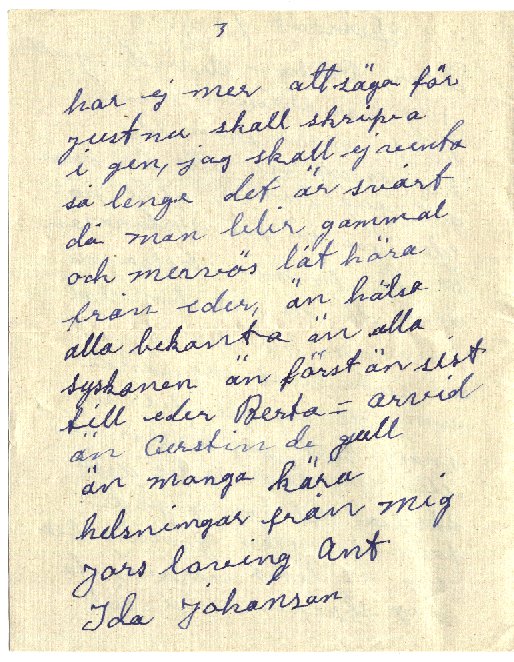 3
har ej mer att säga för
just nu skall skripva
i gen, jag skall ej venta
så lenge det är svårt
då man blir gammal
och nervös låt höra
från eder, än hälsa
alla bekanta än alla
syskonen än först än sist
till eder Berta = arvid
än Cerstin de gull
än manga kära
helsningar från mig
Jors loving Ant
Ida Johanson